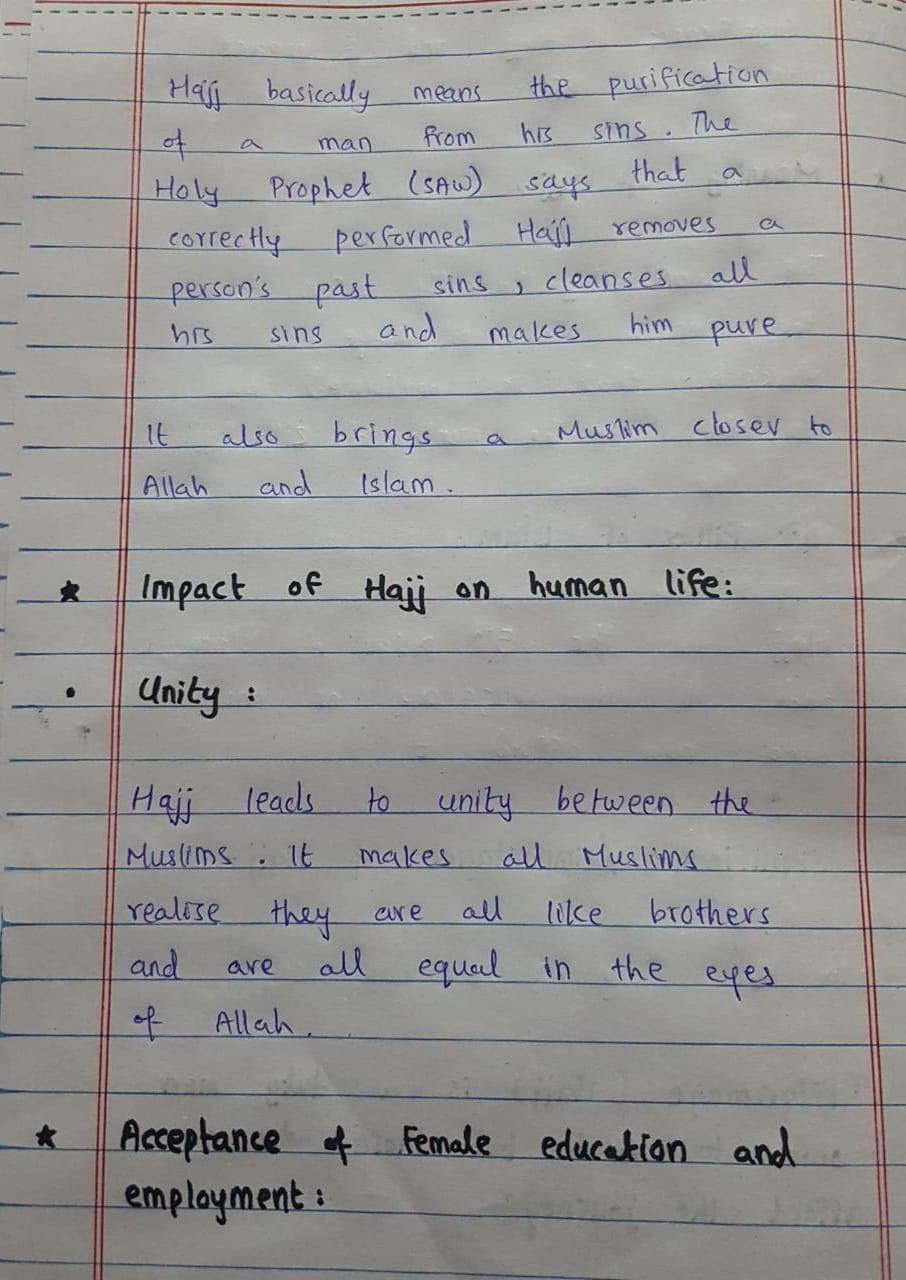 Hajj basically means the purification
of a man from his sins. The
Holy Prophet (SAW) says that a
correctly performed Hajj removes a
person's past sins, cleanses all
his sins and makes him pure
It also brings a Muslim closer to
Allah and Islam.
★ Impact of Hajj on human life:
• Unity :
Hajj leads to unity between the
Muslims. It makes all Muslims
realise they are all like brothers
and are all equal in the eyes
of Allah.
★ Acceptance of Female education and
employment :